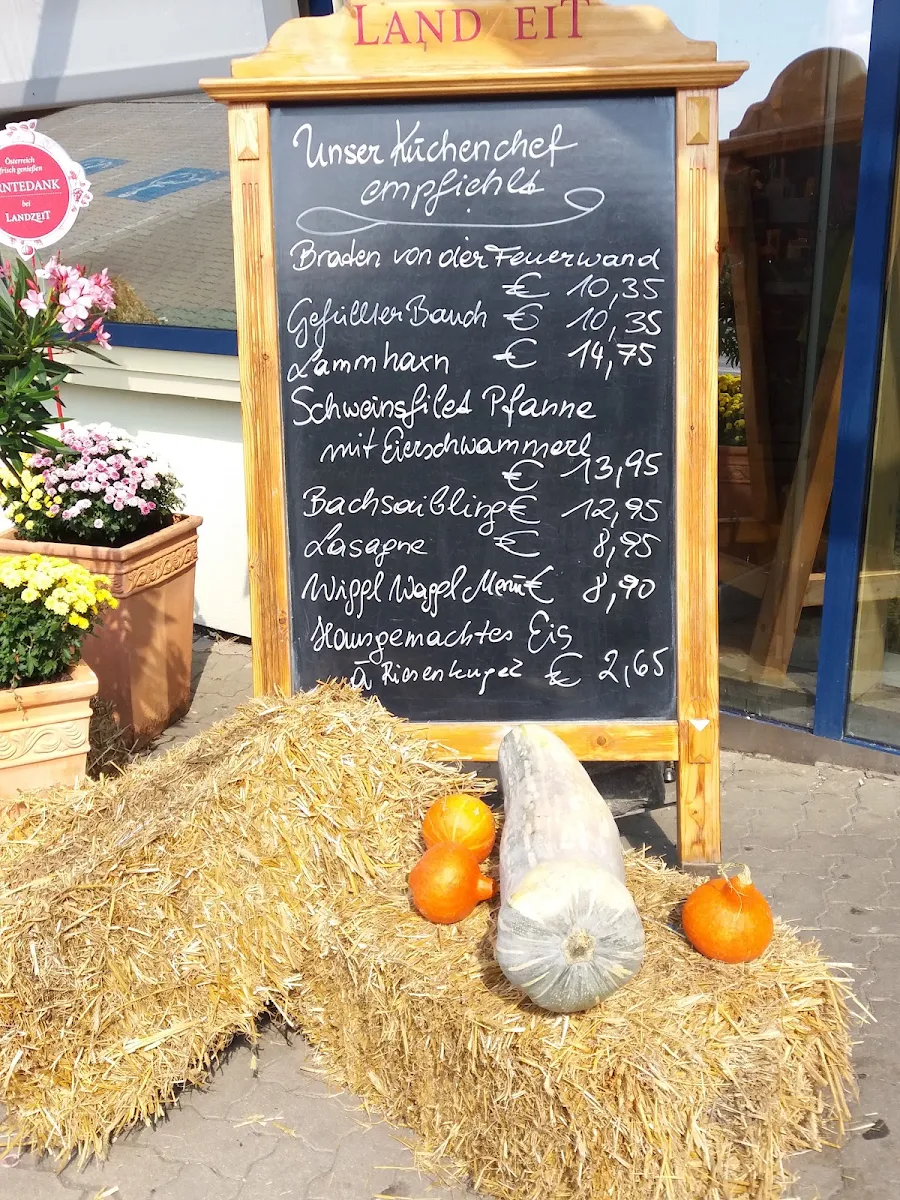 LANDZEIT
Unser Küchenchef
empfiehlt
Braten von der Feuerwand
€ 10,35
Gefüllter Bauch € 10,35
Lammhaxn € 14,75
Schweinsfilet Pfanne
mit Eierschwammerl
€ 13,95
Bachsaibling € 12,95
Lasagne € 8,95
Wippl Wappl Menü € 8,90
Hausgemachtes Eis
á Riesenkugel € 2,65
Österreich
frisch genießen
RNTEDANK
bei
LANDZEIT